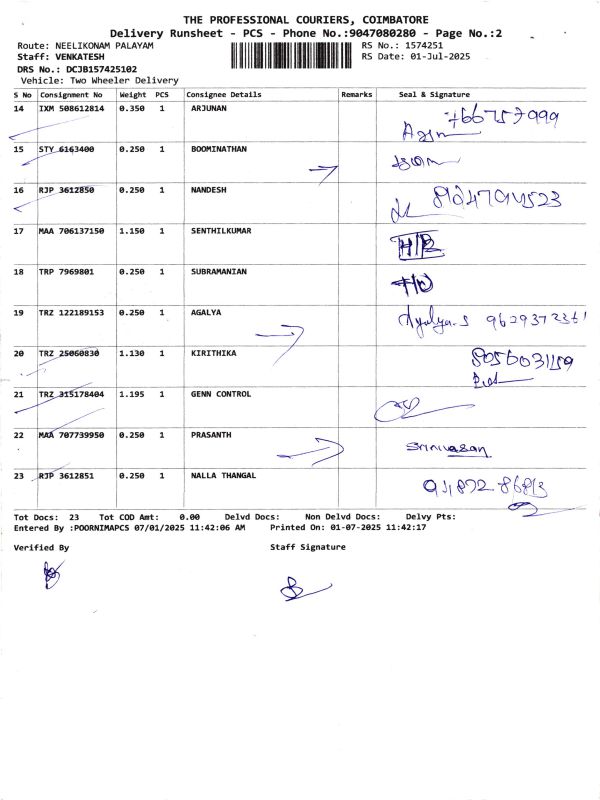 THE PROFESSIONAL COURIERS, COIMBATORE
Delivery Runsheet - PCS - Phone No.:9047080280 - Page No.:2
Route: NEELIKONAM PALAYAM RS No.: 1574251
Staff: VENKATESH RS Date: 01-Jul-2025
DRS No.: DCJB157425102
Vehicle: Two Wheeler Delivery
S No Consignment No Weight PCS Consignee Details Remarks Seal & Signature
14 IXM 508612814 0.350 1 ARJUNAN
15 STY 6163400 0.250 1 BOOMINATHAN
16 RJP 3612850 0.250 1 NANDESH
17 MAA 706137150 1.150 1 SENTHILKUMAR
18 TRP 7969801 0.250 1 SUBRAMANIAN
19 TRZ 122189153 0.250 1 AGALYA
20 TRZ 25060830 1.130 1 KIRITHIKA 8056031159
21 TRZ 315178404 1.195 1 GENN CONTROL
22 MAA 707739950 0.250 1 PRASANTH Srinivasan
23 RJP 3612851 0.250 1 NALLA THANGAL
Tot Docs: 23 Tot COD Amt: 0.00 Delvd Docs: Non Delvd Docs: Delvy Pts:
Entered By :POORNIMAPCS 07/01/2025 11:42:06 AM Printed On: 01-07-2025 11:42:17
Verified By Staff Signature